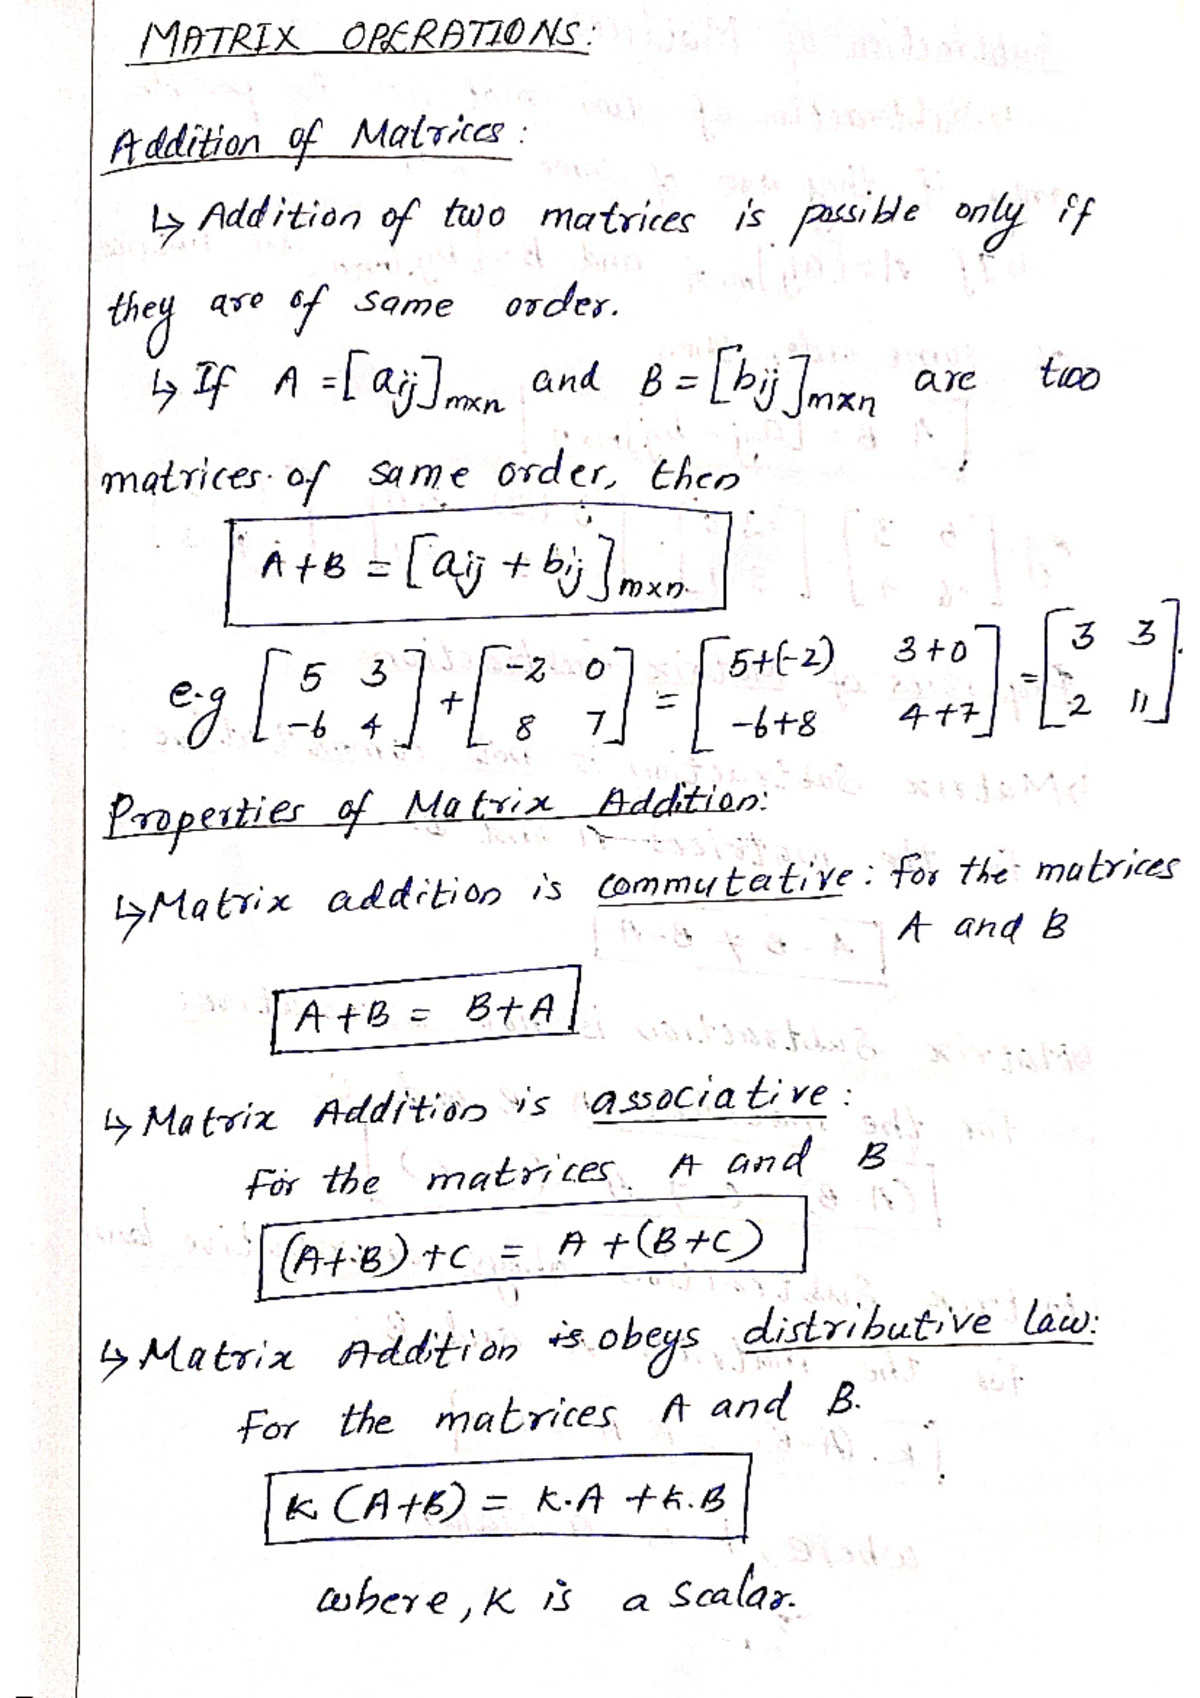 MATRIX OPERATIONS:
Addition of Matrices:
↳ Addition of two matrices is possible only if
they are of same order.
↳ If A = [aij]mxn and B = [bij]mxn are two
matrices of same order, then
A+B = [aij + bij]mxn.
e.g [5 3; -6 4] + [-2 0; 8 7] = [5+(-2) 3+0; -6+8 4+7] = [3 3; 2 11].
Properties of Matrix Addition:
↳ Matrix addition is commutative: for the matrices
A and B
A+B = B+A
↳ Matrix Addition is associative:
For the matrices A and B
(A+B)+C = A+(B+C)
↳ Matrix Addition is obeys distributive law:
For the matrices A and B.
K (A+B) = K.A + K.B
where, K is a scalar.